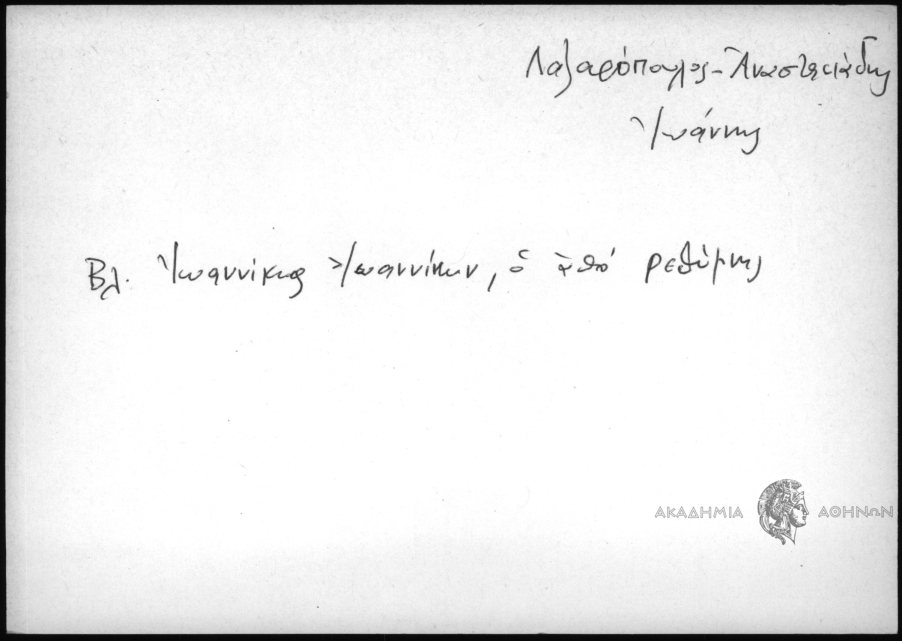 Λαζαρόπουλος - Ἀναστασιάδης
Ἰωάννης
Βλ. Ἰωαννίκιος Ἰωαννίνων, ὁ ἀπό ρεθύμνης
ΑΚΑΔΗΜΙΑ ΑΘΗΝΩΝ